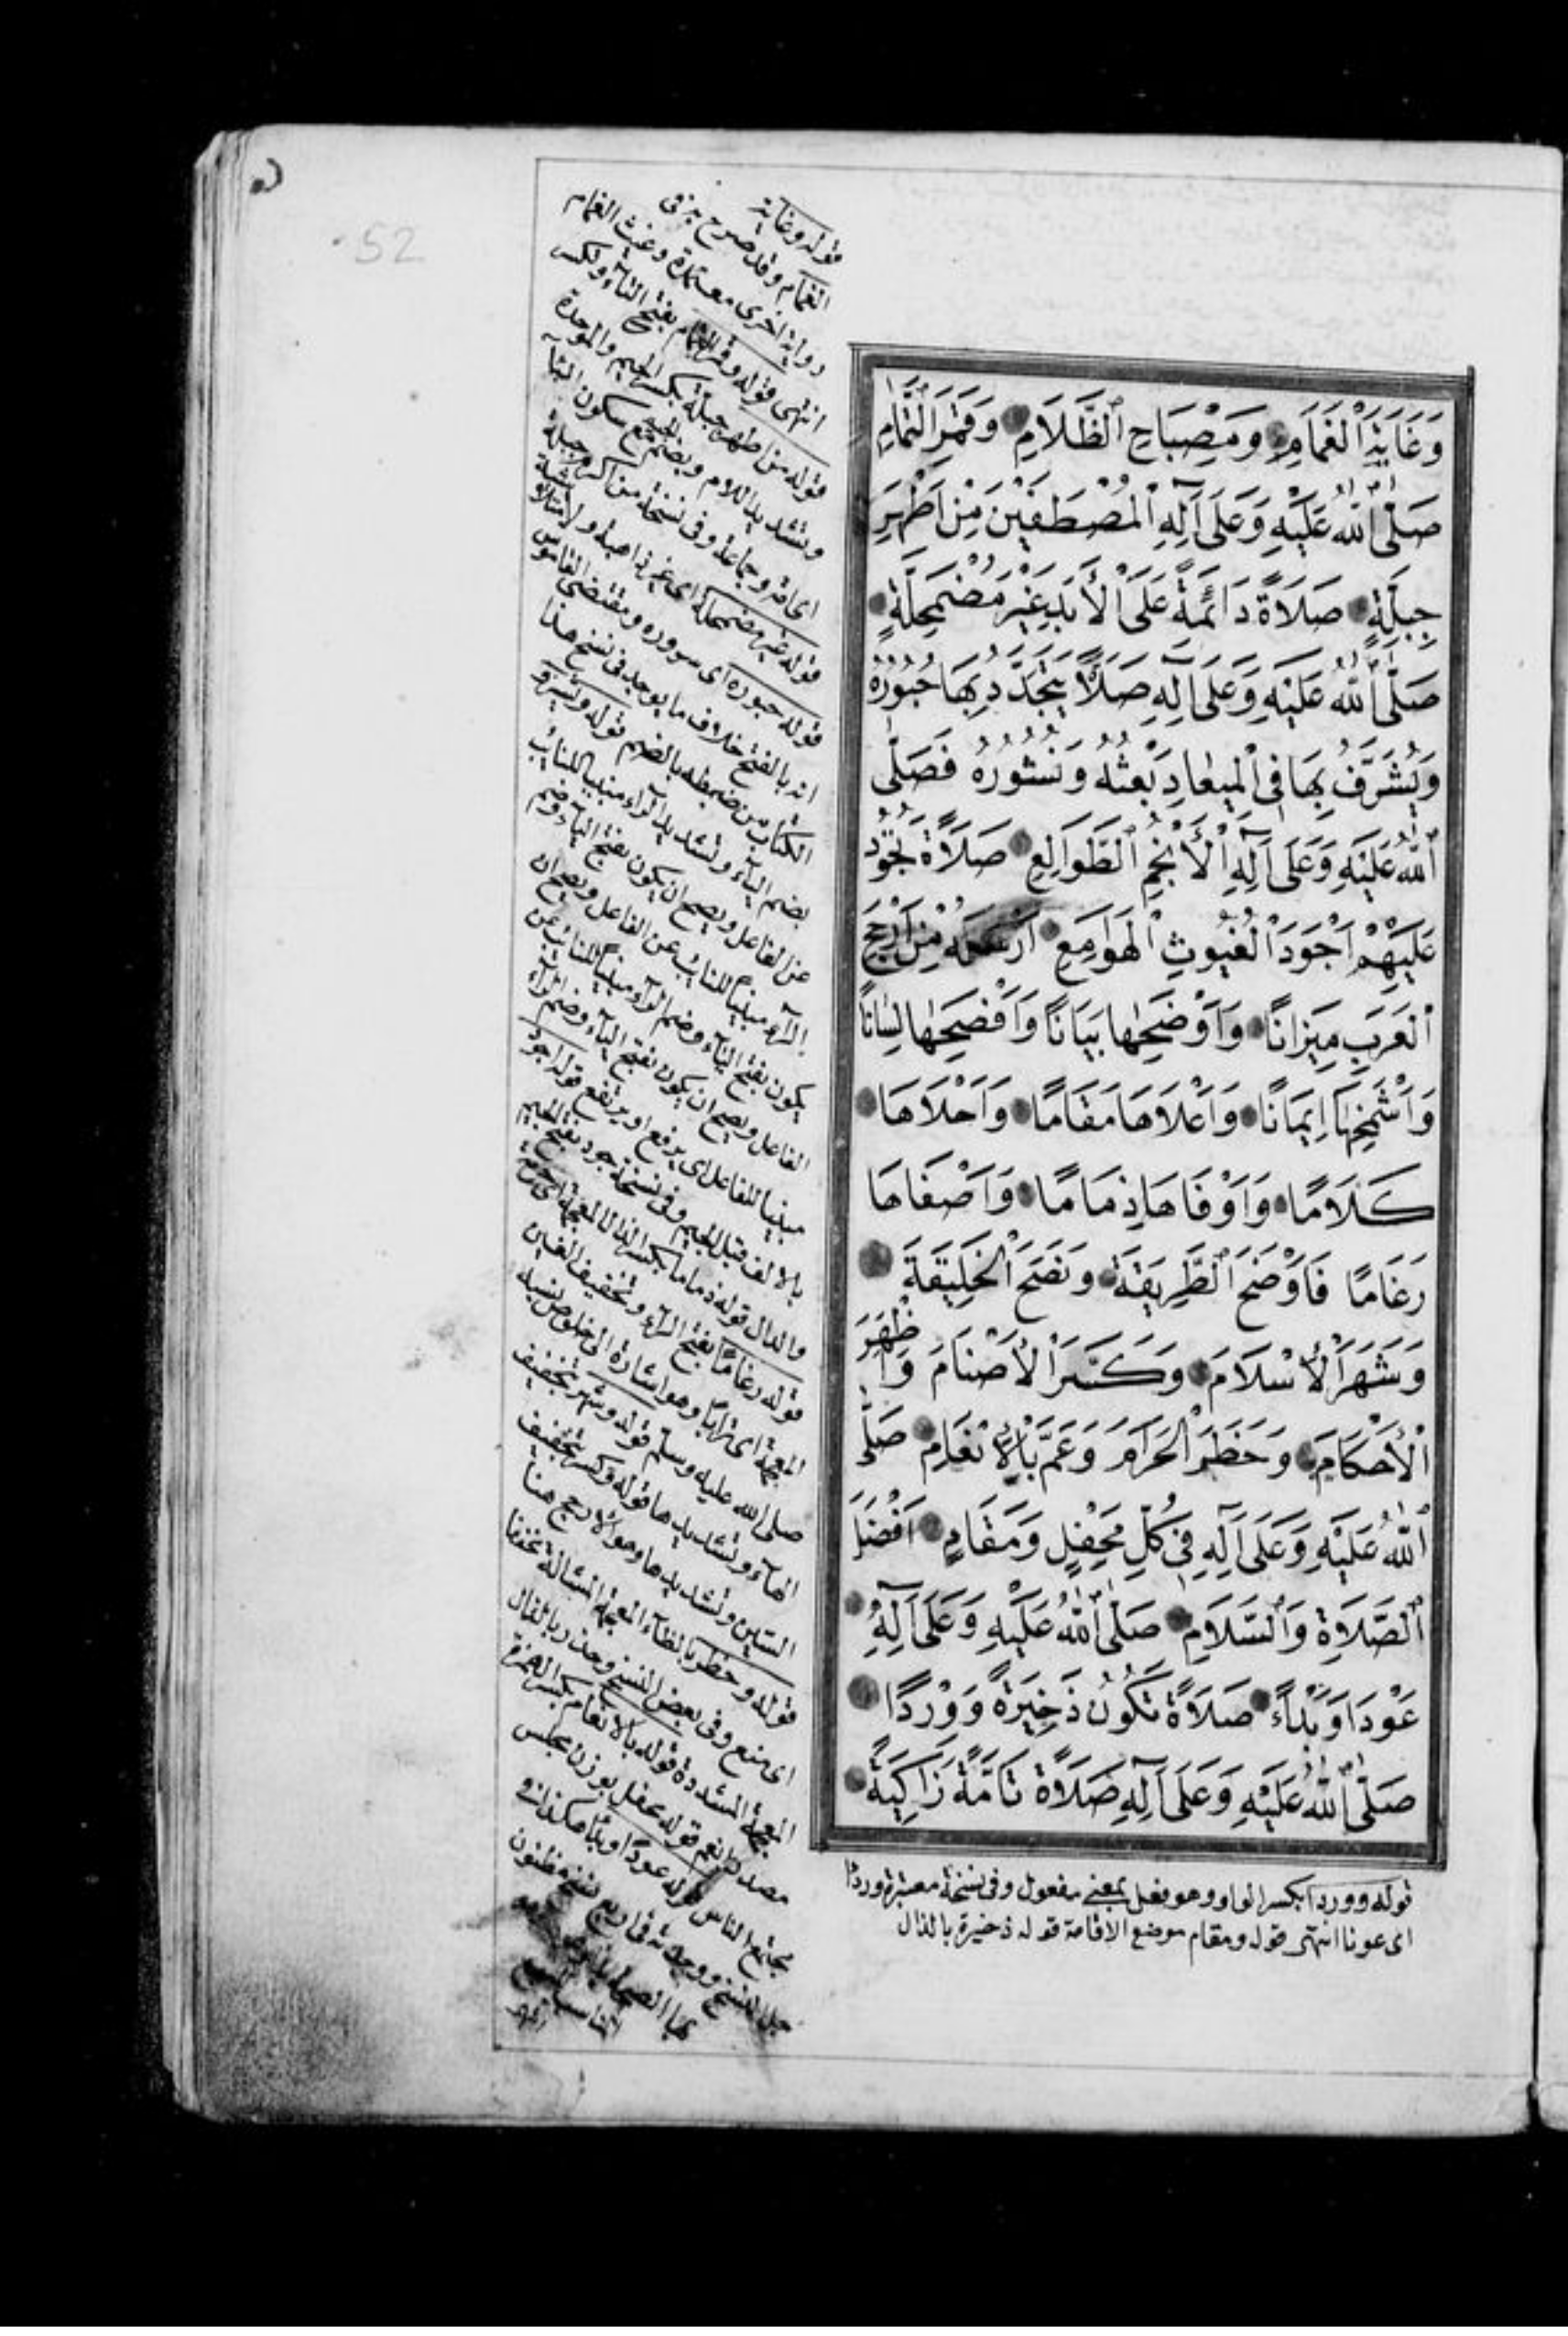 وَغَايَةِ ٱلْغَمَامِ وَمِصْبَاحِ ٱلظَّلَامِ وَقَمَرِ ٱلتَّمَامِ
صَلَّى ٱللّٰهُ عَلَيْهِ وَعَلَى آلِهِ ٱلْمُصْطَفَيْنَ مِنْ اَطْهَرِ
جِبِلَّةٍ صَلَاةً دَائِمَةً عَلَى ٱلْأَبَدِ غَيْرَ مُضْمَحِلَّةٍ
صَلَّى ٱللّٰهُ عَلَيْهِ وَعَلَى آلِهِ صَلَاةً يَتَجَدَّدُ بِهَا حُبُورُهُ
وَيُشَرَّفُ بِهَا فِى ٱلْمِيعَادِ بَعْثُهُ وَنُشُورُهُ فَصَلَّى
ٱللّٰهُ عَلَيْهِ وَعَلَى آلِهِ ٱلْأَنْجُمِ ٱلطَّوَالِعِ صَلَاةً تَجُودُ
عَلَيْهِمْ اَجْوَدَ ٱلْغُيُوثِ ٱلْهَوَامِعِ اَرْسَلَهُ مِنْ اَرْجَحِ
ٱلْعَرَبِ مِيزَانًا وَاَوْضَحِهَا بَيَانًا وَاَفْصَحِهَا لِسَانًا
وَاَشْمَخِهَا اِيمَانًا وَاَعْلَاهَا مَقَامًا وَاَحْلَاهَا
كَلَامًا وَاَوْفَاهَا ذِمَامًا وَاَصْفَاهَا
رَغَامًا فَاَوْضَحَ ٱلطَّرِيقَةَ وَنَصَحَ ٱلْخَلِيقَةَ
وَشَهَرَ ٱلْأِسْلَامَ وَكَسَّرَ ٱلْأَصْنَامَ وَاَظْهَرَ
ٱلْأَحْكَامَ وَحَظَرَ ٱلْحَرَامَ وَعَمَّ بِٱلْأِنْعَامِ صَلَّى
ٱللّٰهُ عَلَيْهِ وَعَلَى آلِهِ فِى كُلِّ مَحْفِلٍ وَمَقَامٍ اَفْضَلَ
ٱلصَّلَاةِ وَٱلسَّلَامِ صَلَّى ٱللّٰهُ عَلَيْهِ وَعَلَى آلِهِ
عَوْدًا وَبَدْاءً صَلَاةً تَكُونُ ذَخِيرَةً وَوِرْدًا
صَلَّى ٱللّٰهُ عَلَيْهِ وَعَلَى آلِهِ صَلَاةً تَامَّةً زَاكِيَةً
قوله ووردا بكسر الواو وهو فعل بمعنى مفعول وفى نسخة معتبرة وردءا
اى عونا انتهى قوله ومقام موضع الاقامة قوله ذخيرة بالذال
قوله وغاية
الغمام وقد صرح به فى
رواية اخرى معتمدة وغيث الغمام
انتهى قوله وقمر التمام بفتح التاء وتكسر
قوله من اطهر جبلة بكسر الجيم والموحدة
وتشديد اللام وبضم الجيم مع سكون الباء
اى امة وجماعة وفى نسخة من اكرم جبلة
قوله غير مضمحلة اى غير ذاهبة ولا متلاشية
قوله حبوره اى سروره ومقتضى القاموس
انه بالفتح خلاف ما يوجد فى نسخ هذا
الكتاب من ضبطه بالضم قوله ويشرف
بضم الياء وتشديد الراء مبنيا للنائب
عن الفاعل ويصح ان يكون بفتح الياء وضم
الراء مبنيا للنائب عن الفاعل ويصح ان
يكون بفتح الياء وضم الراء مبنيا للنائب عن
الفاعل ويصح ان يكون بفتح الياء وضم الراء
مبنيا للفاعل اى يرفع او يرتفع قوله اجود
بالالف قبل الجيم وفى نسخة جود بفتح الجيم
والدال قوله ذماما بكسر الذال المعجمة اى حرمة
قوله رغاما بفتح الراء وتخفيف الغين
المعجمة اى ترابا وهو اشارة الى خلوص نسبه
صلى الله عليه وسلم قوله وشهر بتخفيف
الهاء وتشديدها قوله وكسر بتخفيف
السين وتشديدها وهو الارجح هنا
قوله وحظر بالظاء المعجمة المشالة مخففا
اى منع وفى بعض النسخ وحذر بالذال
المعجمة المشددة قوله بالانعام بكسر الهمزة
مصدر انعم قوله محفل بوزن مجلس
مجتمع الناس قوله عودا وبدأ هكذا فى
جل النسخ ووجدته فى اربع نسخ مظنون
بها الصحة
52